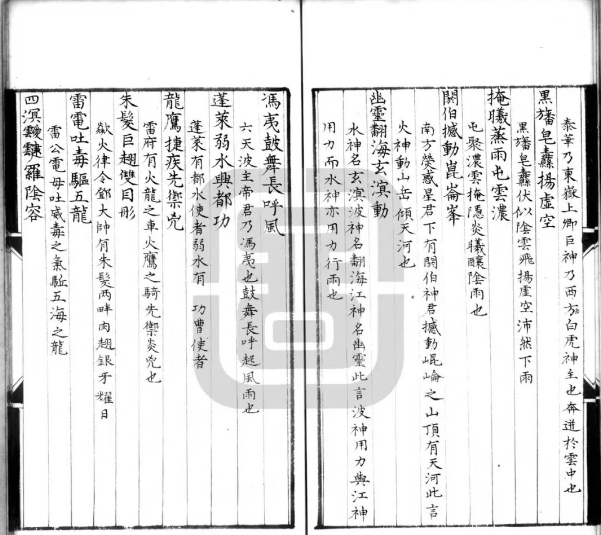 泰華乃東嶽上卿巨神乃西方白虎神主也奔迸於雲中也
黑旛皂纛揚虛空
黑旛皂纛伏似陰雲飛揚虛空沛然下雨
掩曦蒸雨屯雲濃
屯聚濃雲掩隱炎曦釀陰雨也
閼伯撼動崑崙峯
南方熒惑星君下有閼伯神君撼動崐崘之山頂有天河此言
火神動山岳傾天河也
幽靈翻海玄溟動
水神名玄溟波神名翻海江神名幽靈此言波神用力與江神
用力而水神亦用力行雨也
馮夷鼓舞長呼風
六天波主帝君乃馮夷也鼓舞長呼起風雨也
蓬萊弱水興都功
蓬萊有都水使者弱水有 功曹使者
龍鷹捷疾先禦兇
雷府有火龍之車火鷹之騎先禦炎兇也
朱髮巨翅雙目彤
歘火律令鄧大帥有朱髮兩畔肉翅銀牙耀日
雷電吐毒驅五龍
雷公電母吐威毒之氣駈五海之龍
四溟靉靆羅陰容